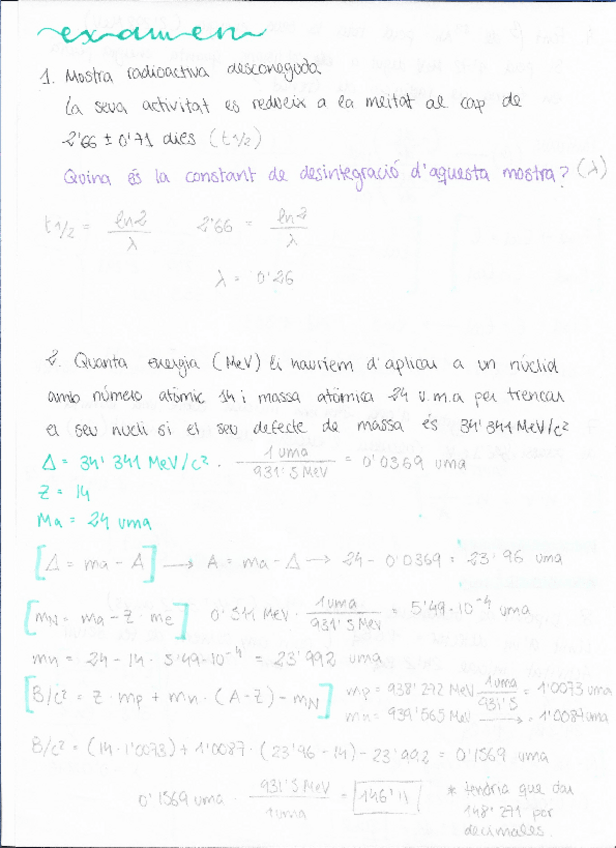 examen
1. Mostra radioactiva desconeguda.
La seva activitat es redueix a la meitat al cap de
2'66 ± 0'71 dies (t1/2)
Quina és la constant de desintegració d'aquesta mostra? (λ)
t1/2 = ln2/λ 2'66 = ln2/λ
λ = 0'26
2. Quanta energia (MeV) li hauríem d'aplicar a un núclid
amb número atòmic 14 i massa atòmica 24 u.m.a per trencar
el seu nucli si el seu defecte de massa és 34'341 MeV/c²
Δ = 34'341 MeV/c² · 1 uma/931'5 MeV = 0'0369 uma
Z = 14
Ma = 24 uma
[Δ = ma - A] → A = ma - Δ → 24 - 0'0369 = 23'96 uma
[mN = ma - Z · me] 0'511 MeV · 1uma/931'5 MeV = 5'49·10⁻⁴ uma
mn = 24 - 14 · 5'49·10⁻⁴ = 23'992 uma
[B/c² = Z · mp + mn · (A-Z) - mN] mp = 938'272 MeV 1uma/931'5 = 1'0073 uma
mn = 939'565 MeV → = 1'0087 uma
B/c² = (14·1'0073) + 1'0087 · (23'96 - 14) - 23'992 = 0'1569 uma
0'1569 uma · 931'5 MeV/1uma = 146'11 * tendría que dar
148'271 por
decimales.